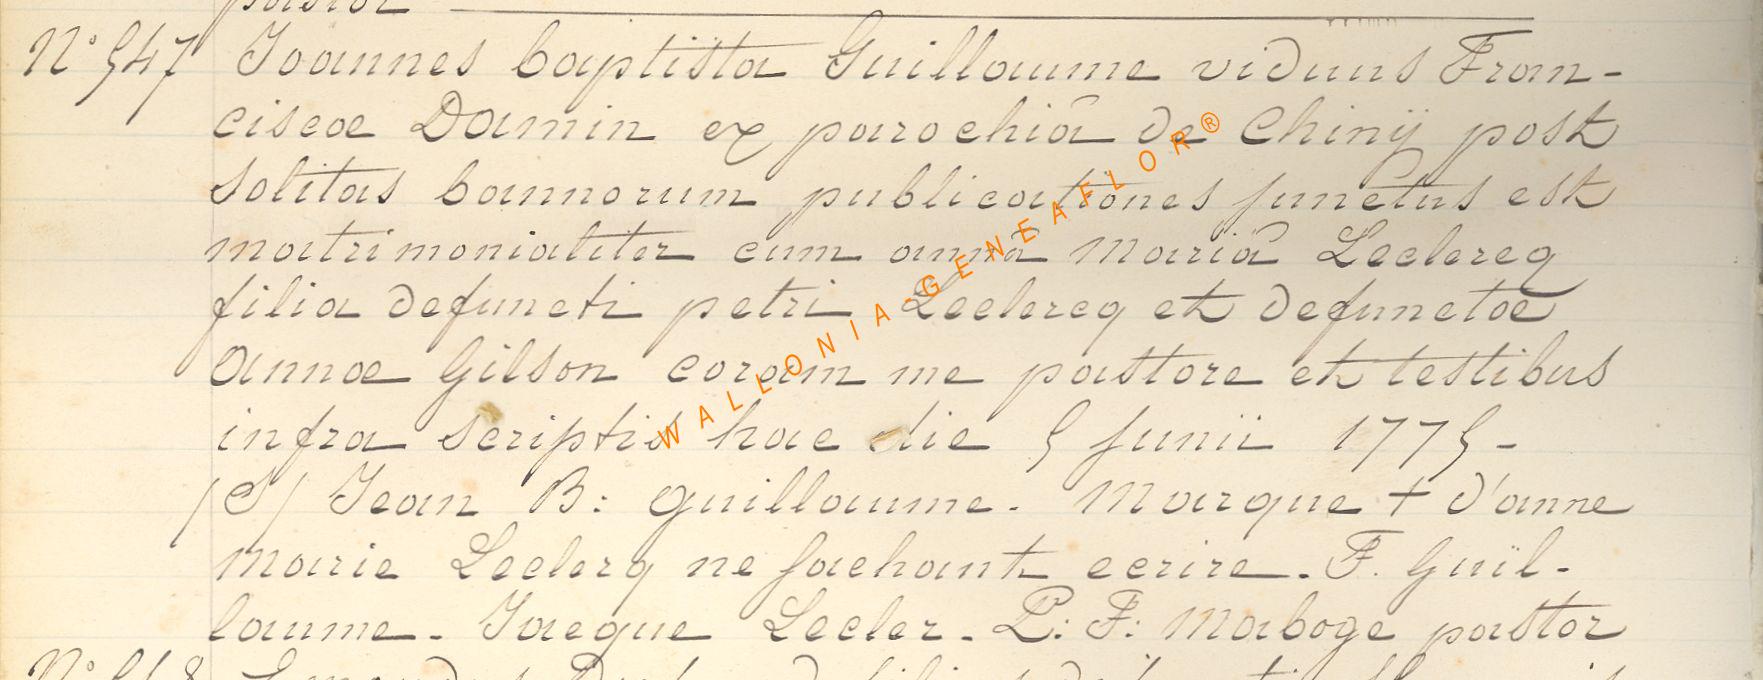 pastor
N° 547 Joannes baptista Guillaume viduus Fran-
ciscæ Damin ex parochiâ de Chinÿ post
solitas bannorum publicationes junctus est
matrimonialiter cum annâ Mariâ Leclercq
filia defuncti petri Leclercq et defunctæ
annæ Gilson coram me pastore et testibus
infra scriptis hac die 5 junii 1775 -
/S/ Jean B: guillaume. Marque + d'anne
marie Leclerq ne sachant ecrire. F. Guil-
laume. Jacque Lecler. P: F: Maboge pastor
N° 548
WALLONIA-GENEAFLOR®